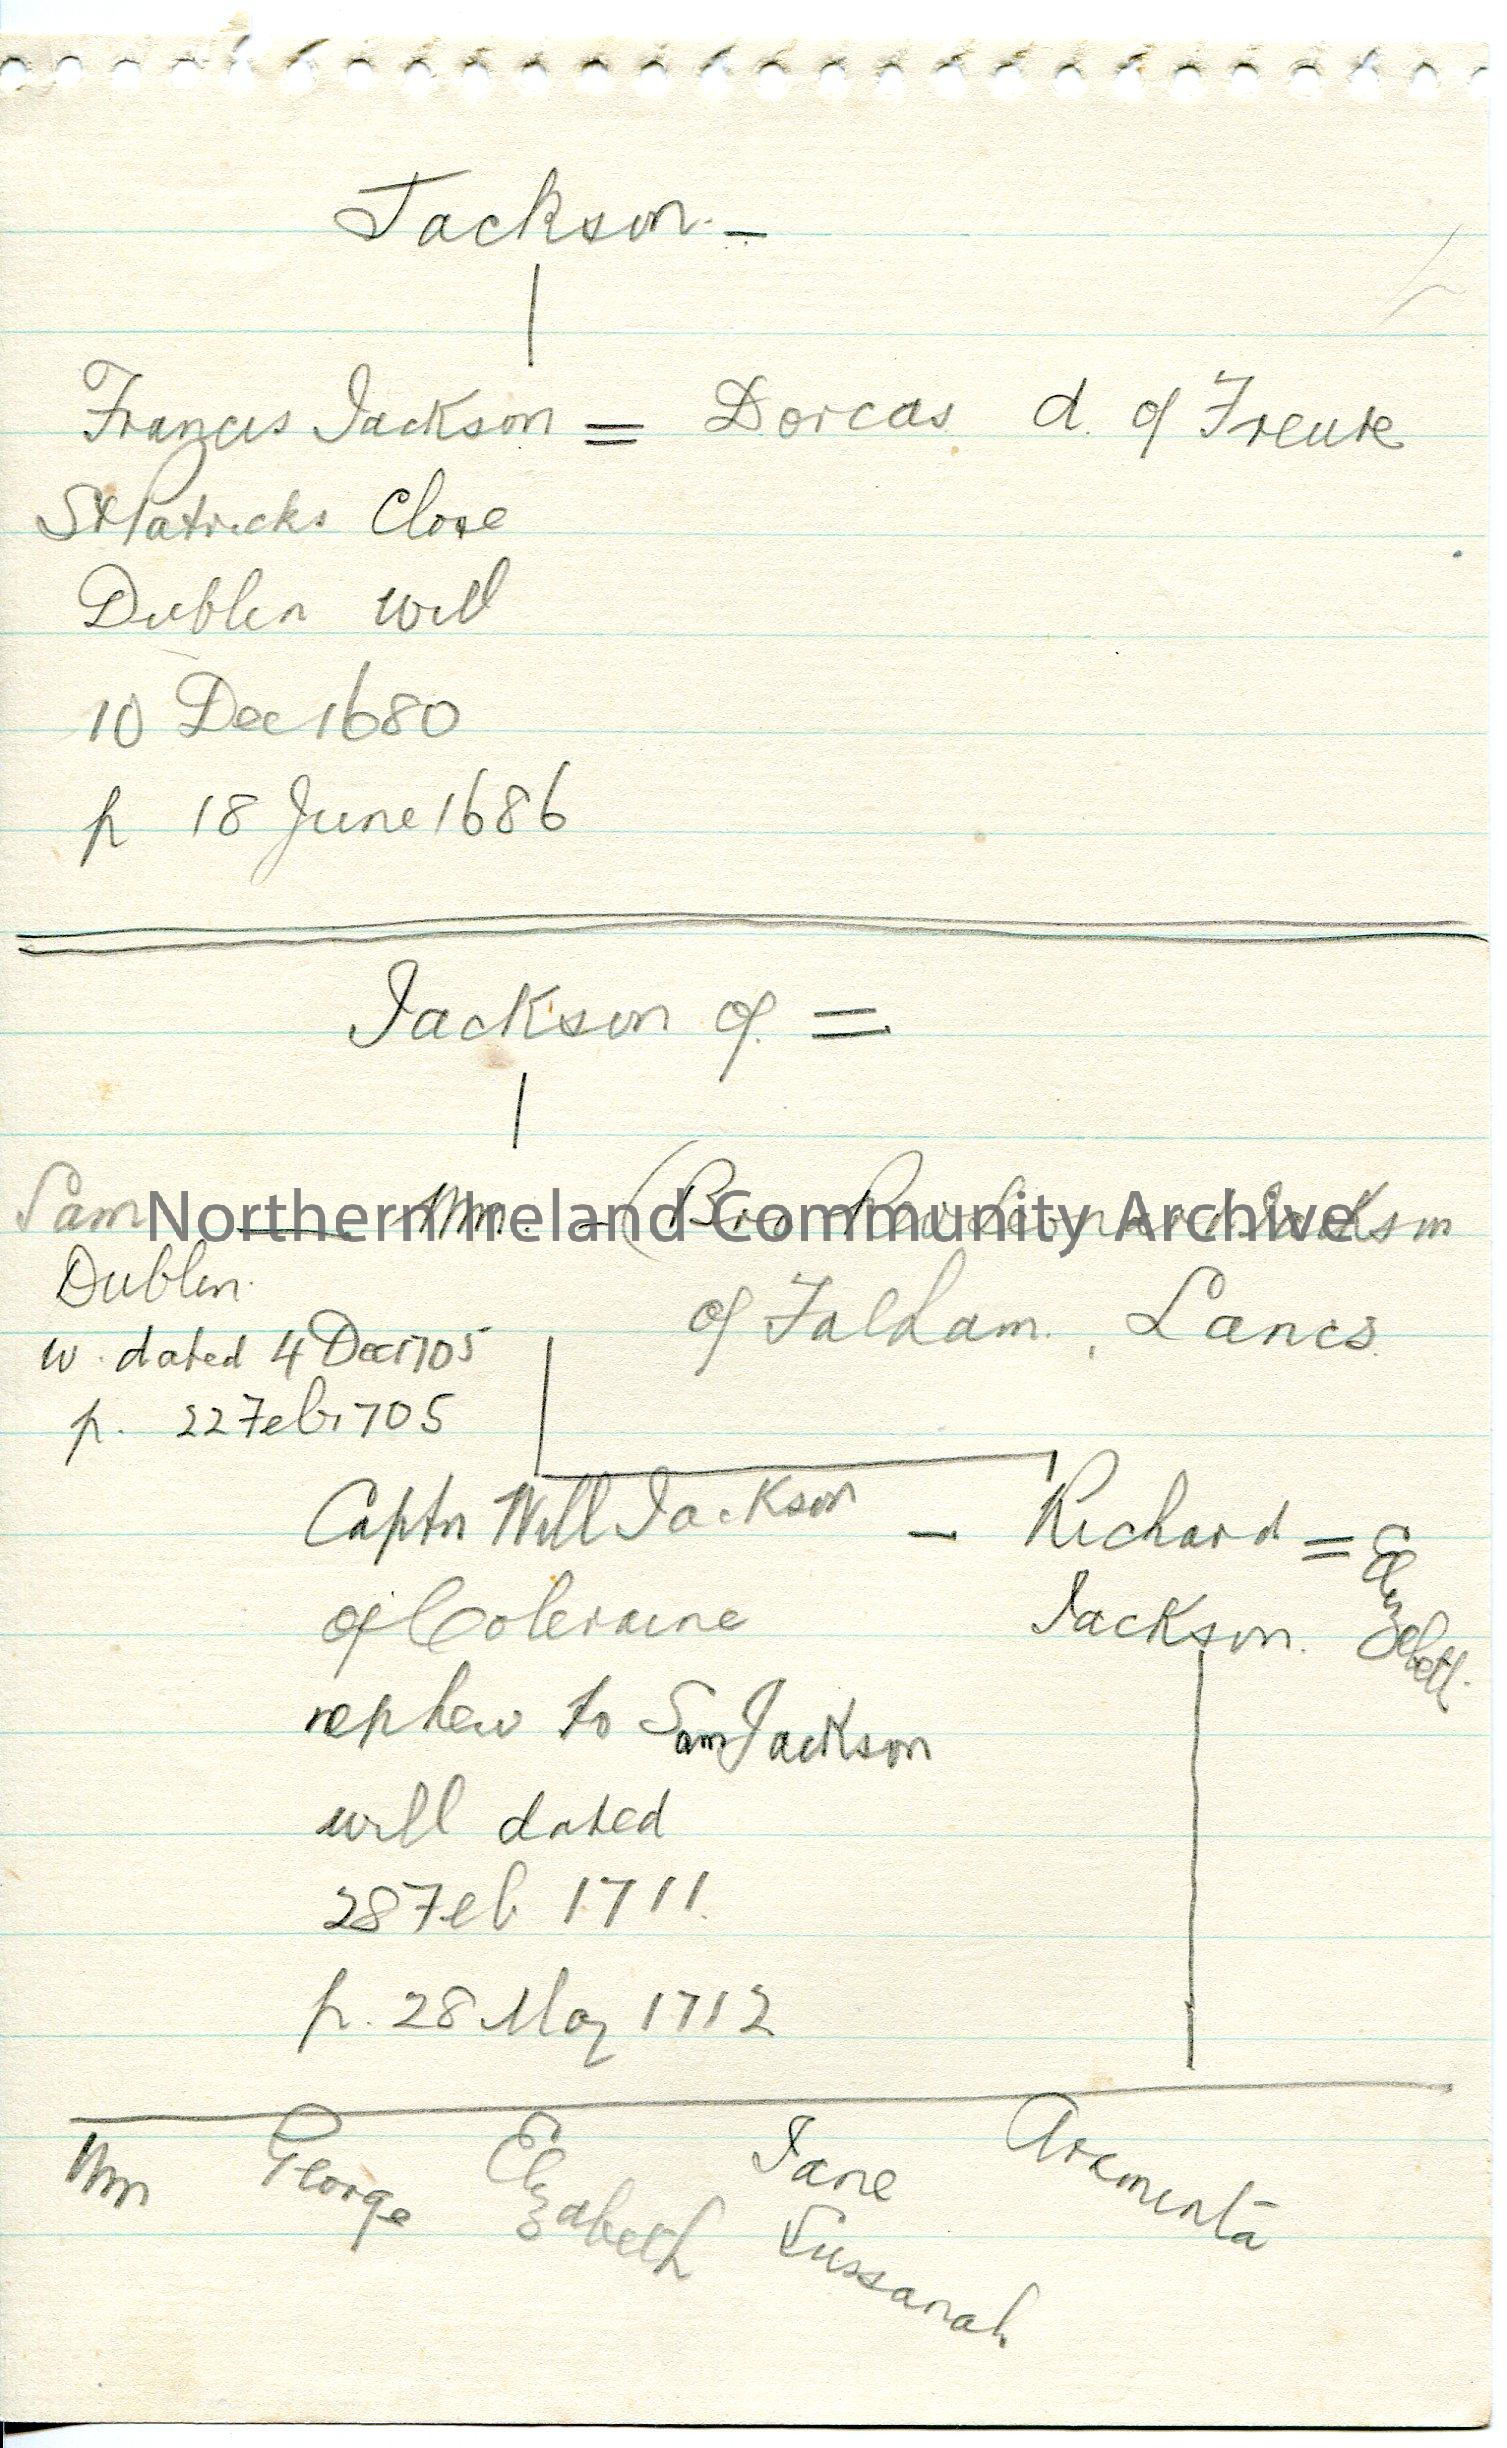 Jackson. -
Francis Jackson = Dorcas d. of
St Patricks Close
Dublin will
10 Dec 1680
p 18 June 1686
Jackson of. =
Sam — Wm. - (Bro Jackson
Northern Ireland Community Archive
Dublin. of Lancs.
w. dated 4 Dec 1705
p. 22 Feb 1705
Captn Will Jackson - Richard = Elizabeth.
of Coleraine Jackson.
nephew to Sam Jackson
will dated
28 Feb 1711.
p. 28 May 1712
Wm George Elizabeth Jane Areminta
Sussanah